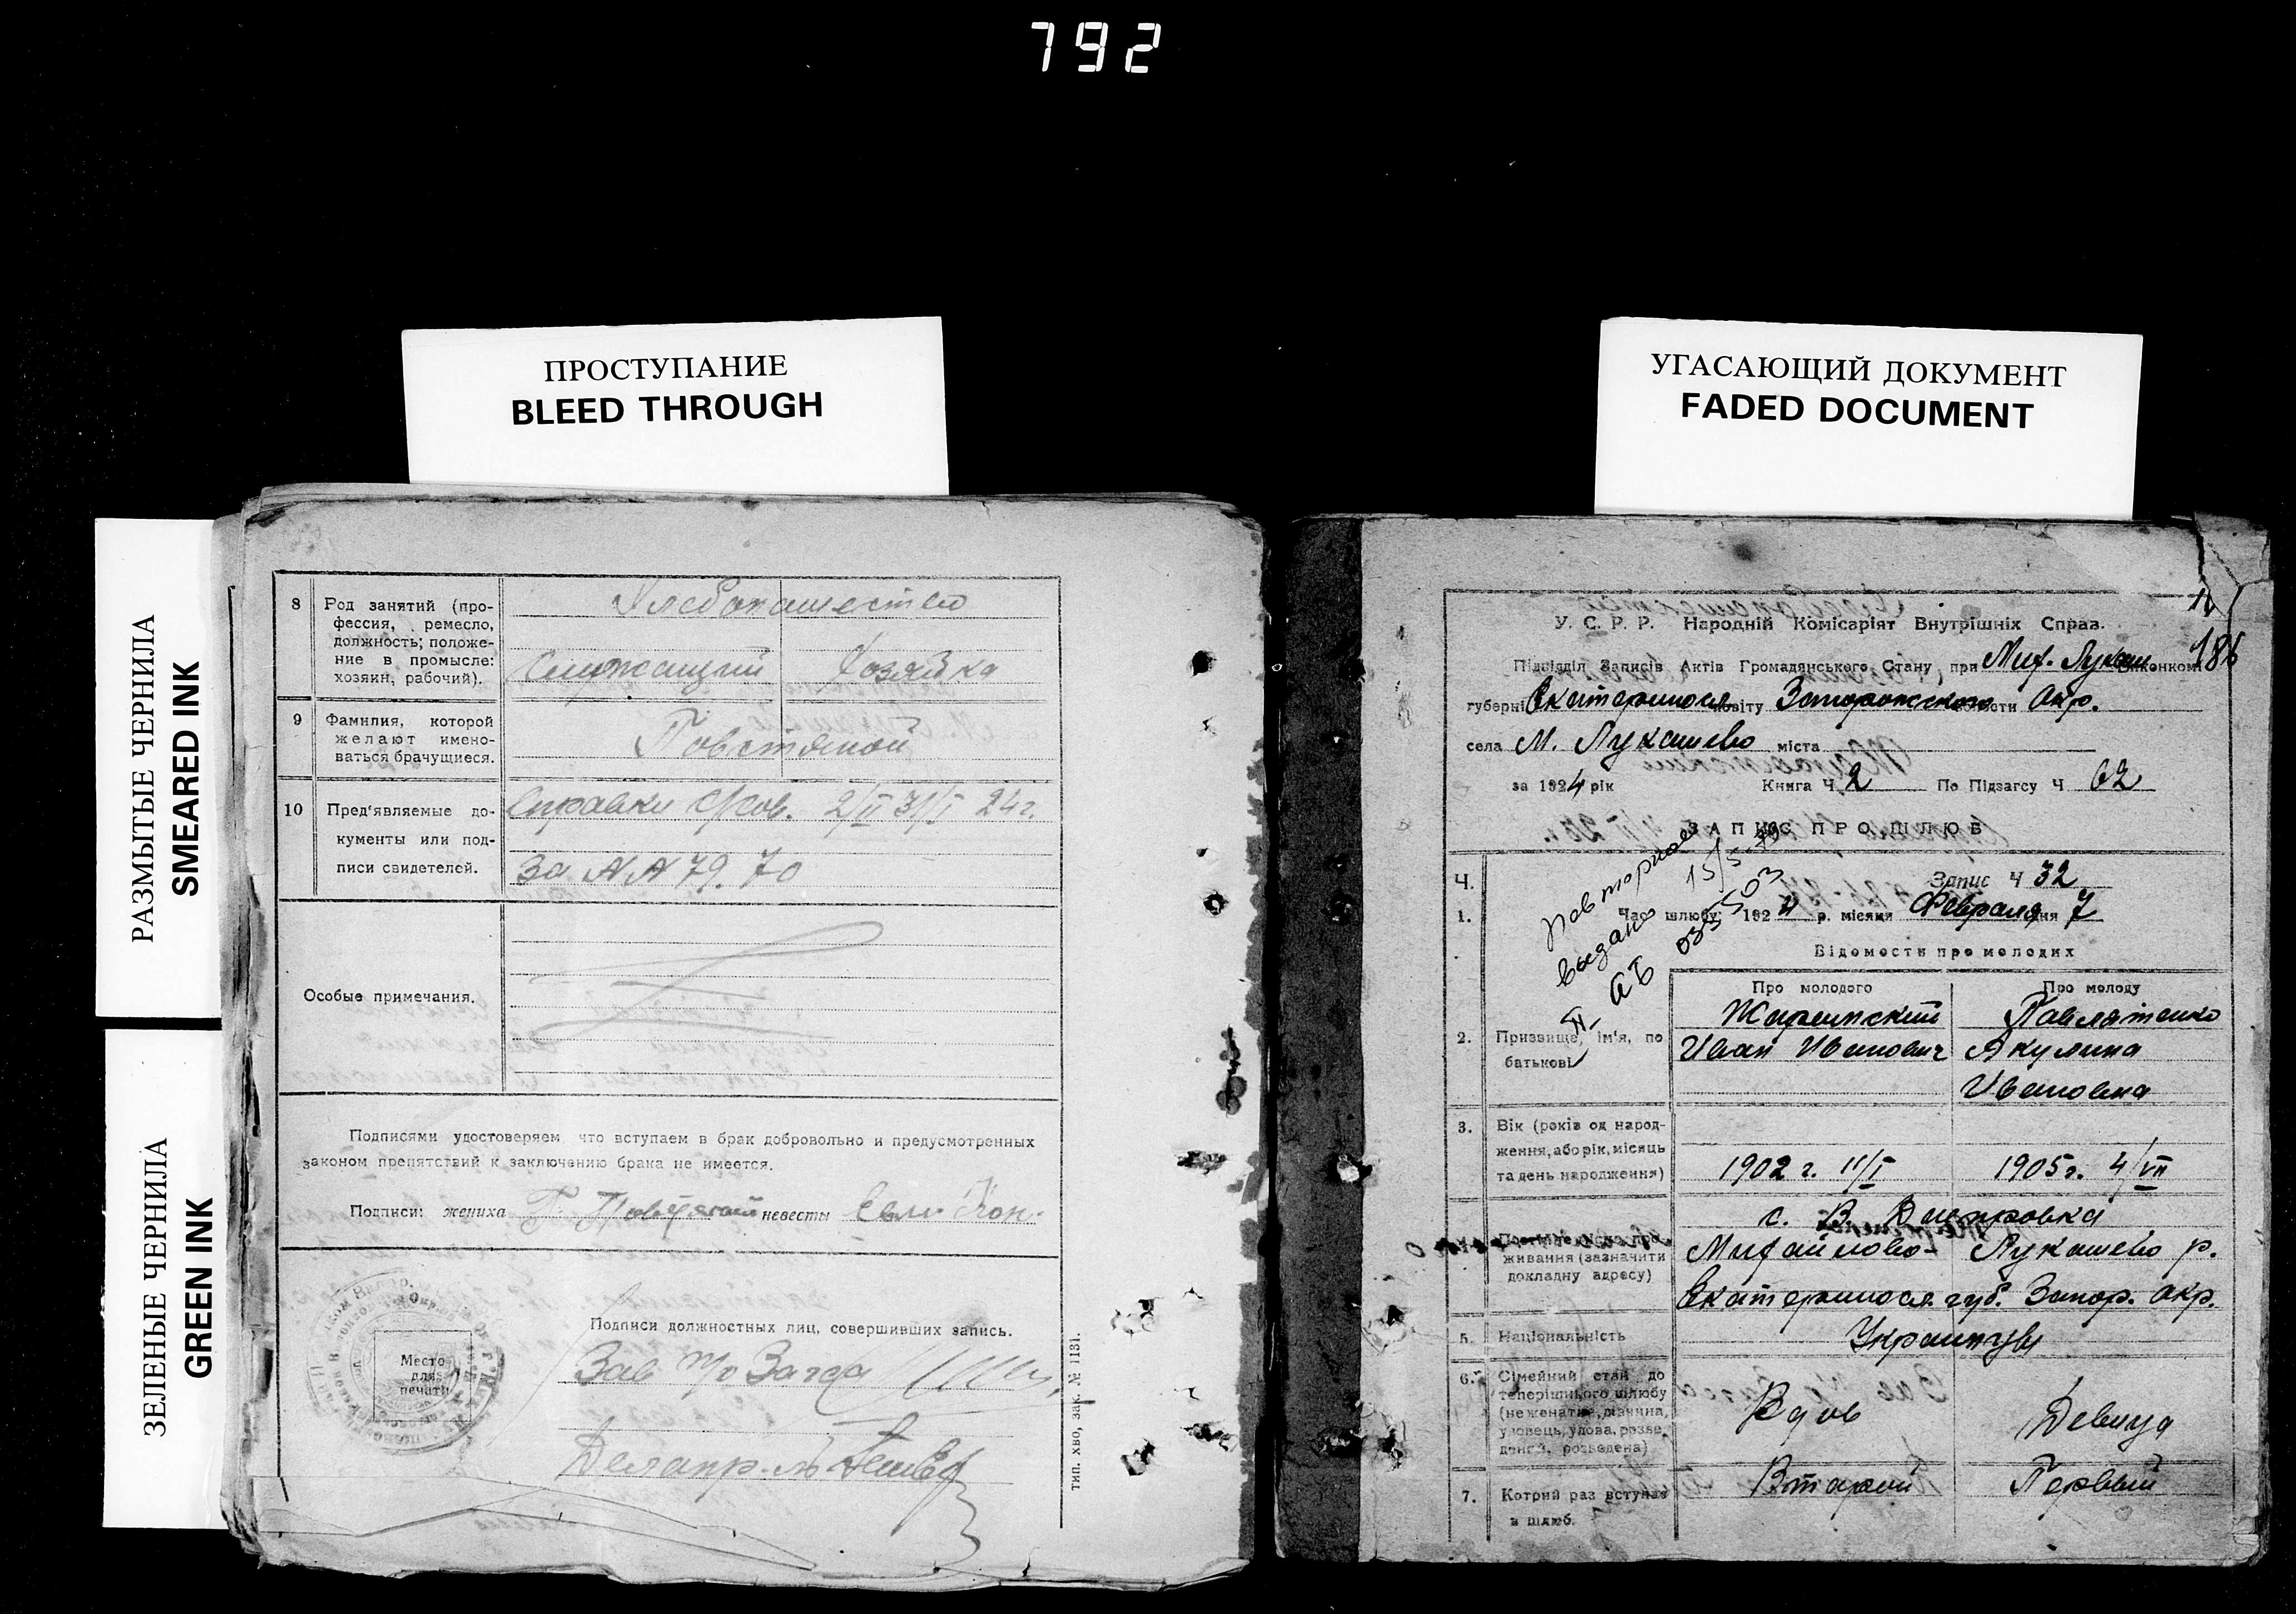 792
ПРОСТУПАНИЕ
BLEED THROUGH
УГАСАЮЩИЙ ДОКУМЕНТ
FADED DOCUMENT
РАЗМЫТЫЕ ЧЕРНИЛА
SMEARED INK
ЗЕЛЕНЫЕ ЧЕРНИЛА
GREEN INK
8 Род занятий (про-
фессия, ремесло,
должность; положе-
ние в промысле:
хозяин, рабочий).
Хлебопашество
Служащий Хозяйка
9 Фамилия, которой
желают имено-
ваться брачущиеся.
Повстяной
10 Пред'являемые до-
кументы или под-
писи свидетелей.
Справки с/сов. 2/II 31/I 24г.
За №№ 79. 70
Особые примечания.
Подписями удостоверяем, что вступаем в брак добровольно и предусмотренных
законом препятствий к заключению брака не имеется.
Подписи: жениха невесты
Подписи должностных лиц, совершивших запись.
Зав п/о Загса
Место
для
печати
Делопр-ль
тип. хво, зак. № 1131.
186
У. С. Р. Р. Народній Комісаріят Внутрішніх Справ.
Підвідділ Записів Актів Громадянського Стану при Мих. Лукаш виконкомі
губерні Екатериносл. повіту Запорожского волости Окр.
села М. Лукашево міста
за 1924 рік Книга Ч. 2 По Підзагсу Ч 62
ЗАПИС ПРО ШЛЮБ
Ч. Запис Ч 32
1. Час шлюбу: 1924 р. місяця Февраля дня 7
повторное
выдано 15/5
II АБ 035503
Відомости про молодих
Про молодого Про молоду
2. Призвище, ім'я, по
батькові
Иван Иванович Акулина
Ивановна
3. Вік (років од народ-
ження, або рік, місяць
та день народження)
1902 г. 11/I 1905г. 4/VII
с. В. Днепровка
живання (зазначити
докладну адресу)
Михайлово- Лукашево р.
Екатериносл. губ. Запор. окр.
5. Національність
Украинцы
6. Сімейний стан до
теперішнього шлюбу
(не женатий, дівчина,
удовець, удова, розве-
дений, розведена)
Вдов Девица
7. Котрий раз вступає
в шлюб.
Второй Первый